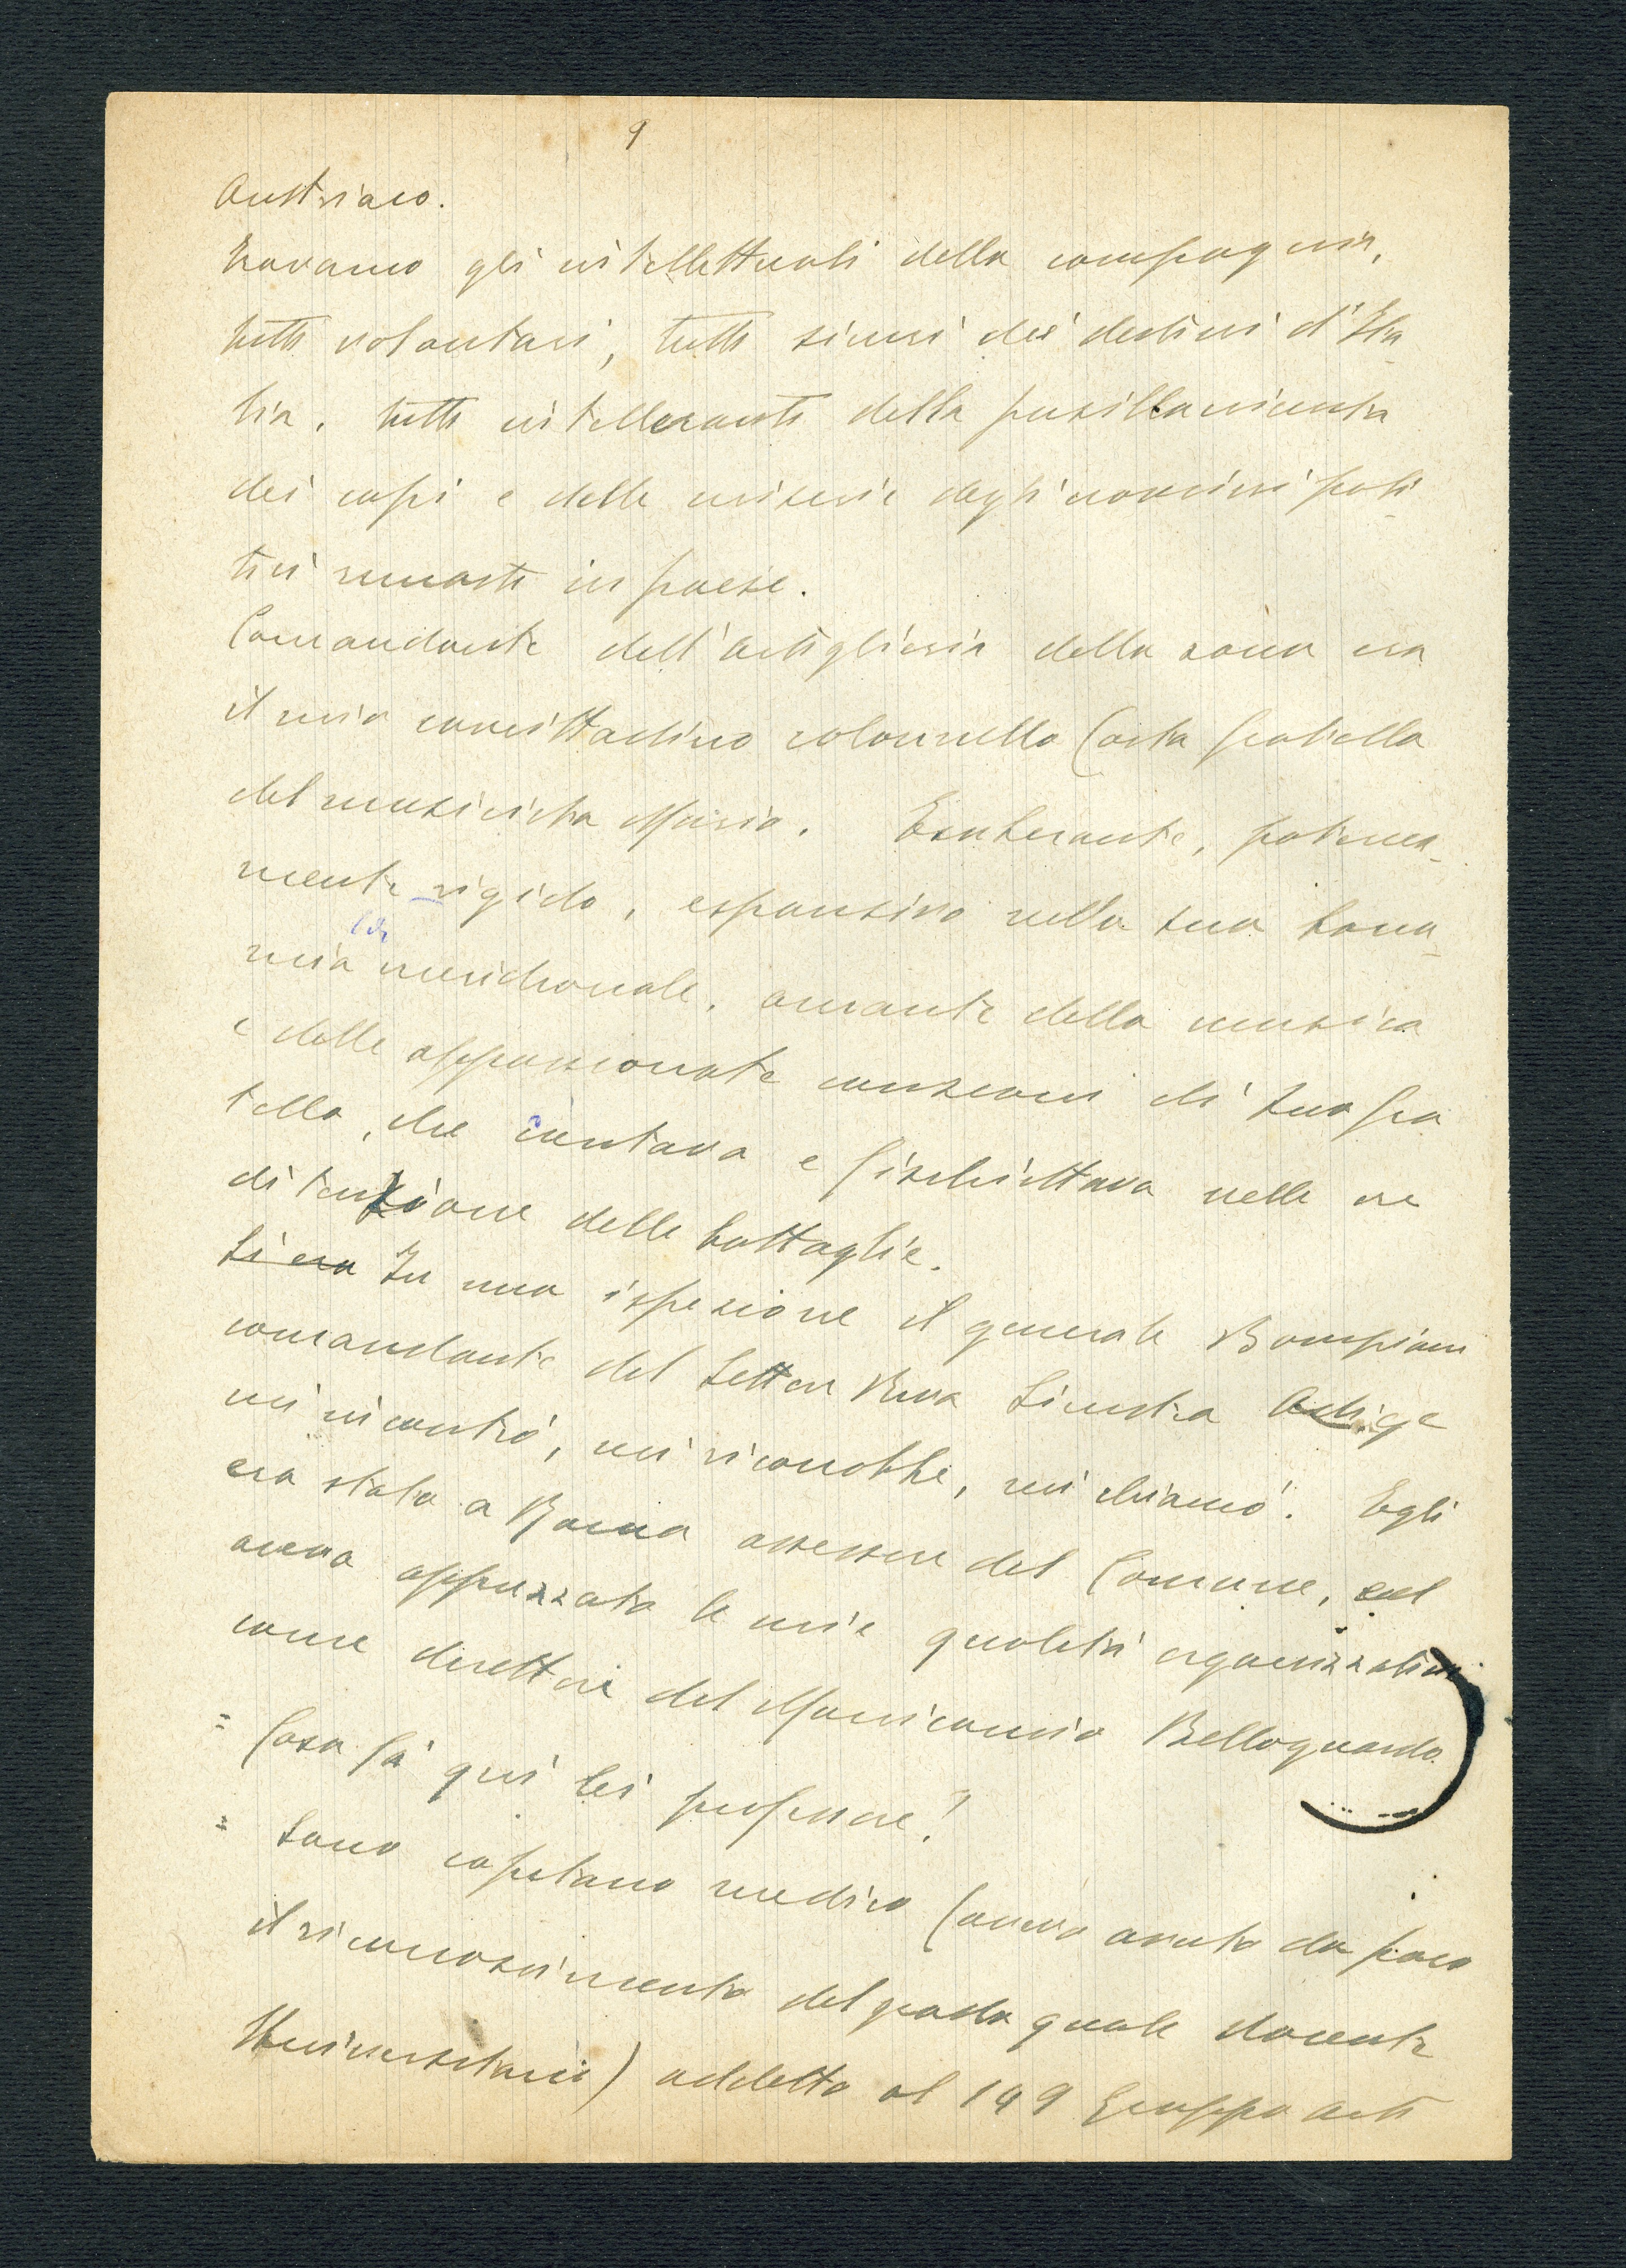 9
Austriaco.
Eravamo gli intellettuali della compagnia,
tutti volontari, tutti sicuri dei destini d'Ita-
lia, tutti intelleranti della pusillanimità
dei capi e delle miserie degli uomini poli-
tici rimasti in paese.
Comandante dell'artiglieria della zona era
il mio concittadino colonnello Costa fratello
del musicista Mario. Esuberante,
mente rigido, espansivo nella sua bona-
mia meridionale, amante della musica
e delle appassionate canzoni di suo fra
tello, che cantava e fischiettava nelle ore
di tensione delle battaglie.
Si era In una ispezione il generale Bompiani
comandante del Settore Riva Sinistra Adige
mi incontrò, mi riconobbe, mi chiamò. Egli
era stato a Roma assessore del Comune, ed
aveva apprezzato le mie qualità organizzative
come direttore del Manicomio Belloguardo.
= Cosa fà qui lei professore?
= Sono capitano medico (avevo avuto da poco
il riconoscimento del grado quale docente
Universitario) addetto al 149 Gruppo arti